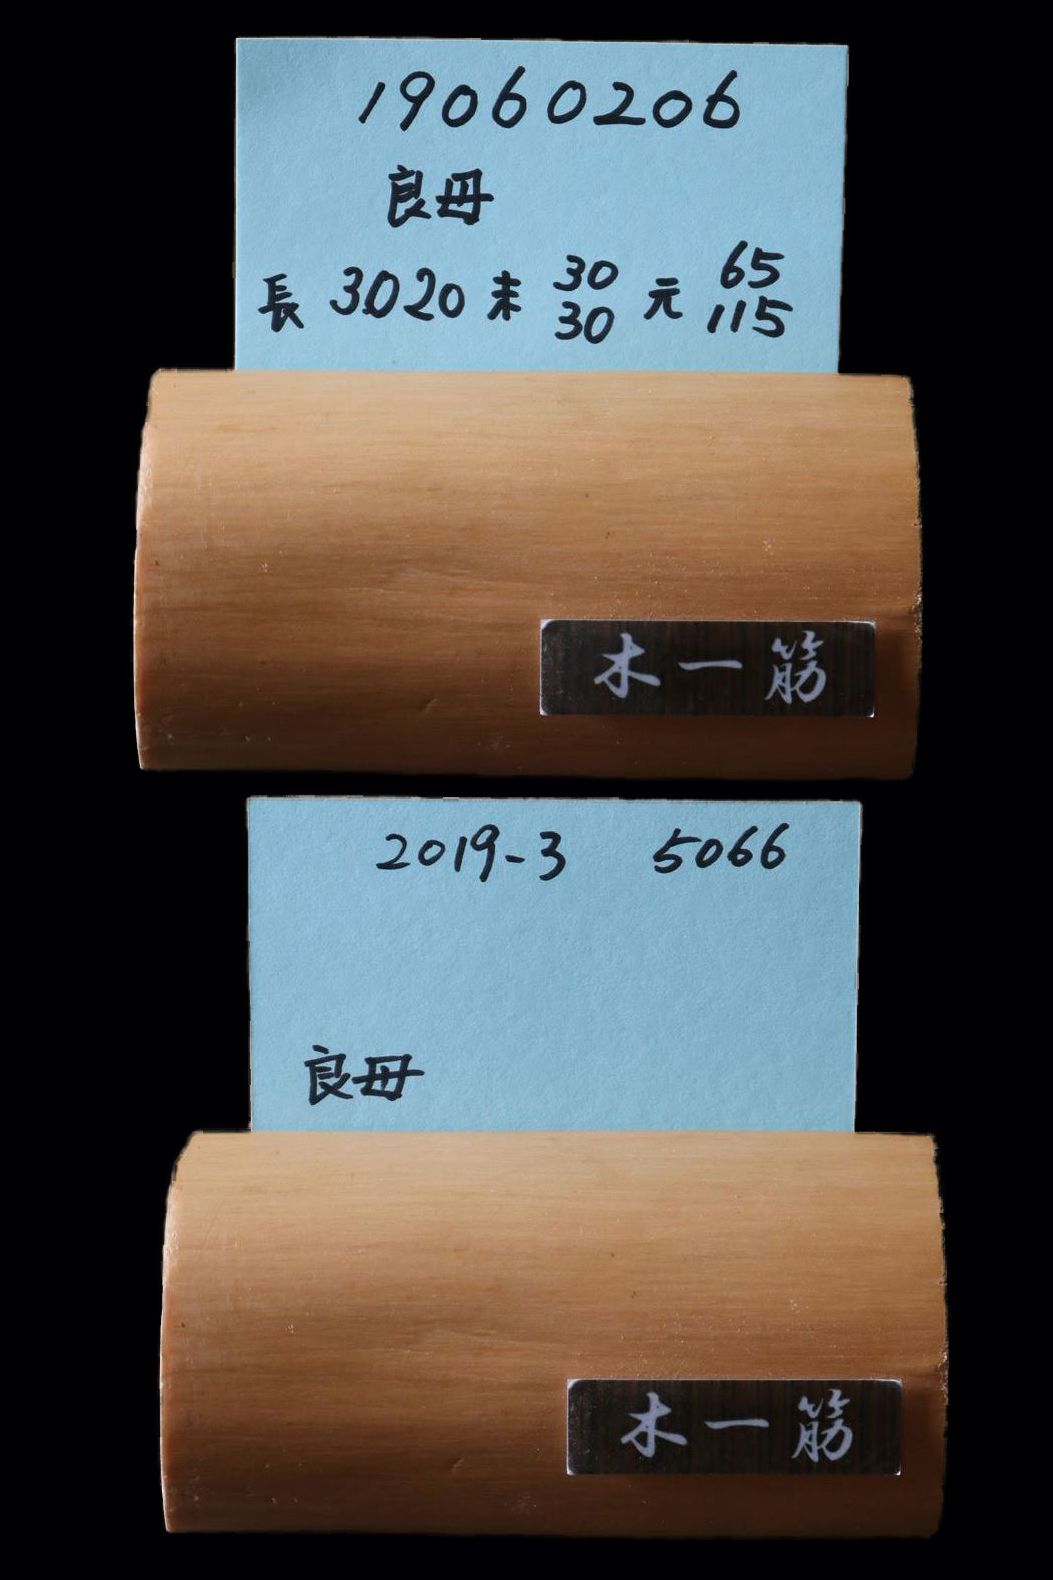 19060206
良母
長 3020 末 30/30 元 65/115
木一筋
2019-3 5066
良母
木一筋